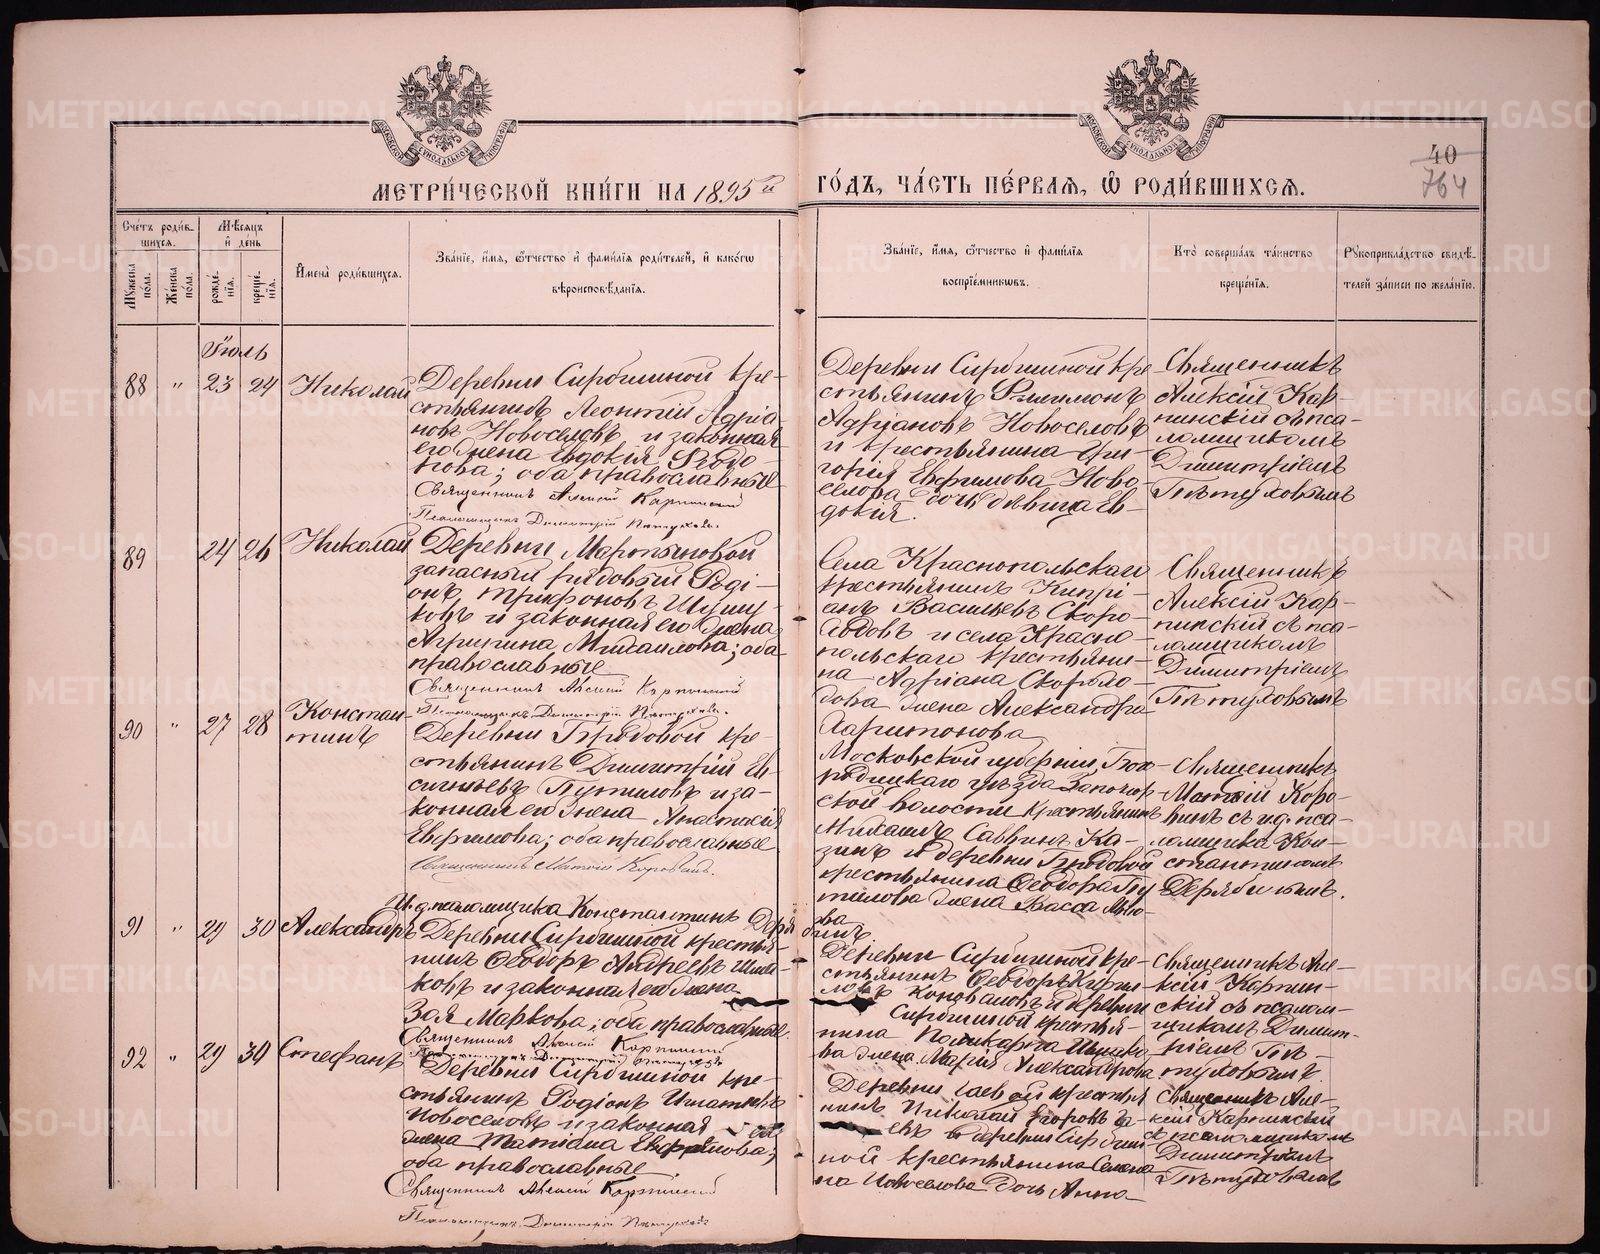 METRIKI.GASO-URAL.RU
МОСКОВСКОЙ СУНОДАЛЬНОЙ ТИПОГРАФІИ
МОСКОВСКОЙ СУНОДАЛЬНОЙ ТИПОГРАФІИ
40
764
МЕТРИ́ЧЕСКОЙ КНИ́ГИ НА 1895й ГО́ДЪ, ЧА́СТЬ ПЕ́РВАЯ, Ѡ҆ РОДИ́ВШИХСЯ.
Сче́тъ роди́в-
шихся.
Му́жеска по́ла.
Же́нска по́ла.
Мѣ́сяцъ
и҆ де́нь
рожде́-
нїя.
креще́-
нїя.
И҆мена̀ роди́вшихся.
Зва́нїе, и҆́мя, ѻ҆́тчество и҆ фами́лїя роди́телей, и҆ како́гѡ
вѣроисповѣ́данїя.
Зва́нїе, и҆́мя, ѻ҆́тчество и҆ фами́лїя
воспрїе́мникѡвъ.
Кто̀ соверша́лъ та́инство
креще́нїя.
Рꙋкоприкла́дство свидѣ́-
телей за́писи по жела́нїю.
Іюль
88 " 23 24 Николай
Деревни Сирбишной кре-
стьянинъ Леонтій Адріа-
новъ Новоселовъ и законная
его жена Евдокія Ѳеодо-
това; оба православные
Священникъ Алексій Карпинскій
Псаломщикъ Димитрій Пѣтуховъ.
Деревни Сирбишной кре-
стьянинъ Филимонъ
Адріановъ Новоселовъ
и крестьянина Гри-
горія Евфимова Ново-
селова дочь дѣвица Ев-
докія.
Священникъ
Алексій Кар-
пинскій съ пса-
ломщикомъ
Димитріемъ
Пѣтуховымъ
89 24 26 Николай
Деревни Мартыновой
запасный рядовый Роді-
онъ Трифоновъ
и законная его жена
Агрипина Михаилова; оба
православные
Священникъ Алексій Карпинскій
Псаломщикъ Димитрій Пѣтуховъ.
Села Краснопольскаго
крестьянинъ Кипрі-
анъ Васильевъ Скоро-
ходовъ и села Красно-
польскаго крестьяни-
на Адріана Скорохо-
дова жена Александра
Харитонова
Священникъ
Алексій Кар-
пинскій съ пса-
ломщикомъ
Димитріемъ
Пѣтуховымъ
90 " 27 28 Констан-
тинъ
Деревни Бродовой кре-
стьянинъ Димитрій Ев-
сигніевъ Путиловъ и за-
конная его жена Анастасія
Евфимова; оба православные
Священникъ Матѳій Коровинъ.
И. д. псаломщика Константинъ Дерябинъ
Московской губерніи Бого-
родицкаго уѣзда Запонор-
ской волости крестьянинъ
Михаилъ Саввинъ Ка-
зинъ и деревни Бродовой
крестьянина Ѳеодора Пу-
тилова жена Васса Льво-
ва
Священникъ
Матѳій Коро-
винъ съ и.д. пса-
ломщика Кон-
стантиномъ
Дерябинымъ.
91 " 29 30 Александръ
Деревни Сирбишной крестья-
нинъ Ѳеодоръ Андреевъ Ишма-
ковъ и законная его жена
Зоя Маркова; оба православные.
Священникъ Алексій Карпинскій
Псаломщикъ Димитрій Пѣтуховъ
Деревни Сирбишной кре-
стьянинъ Ѳеодоръ Кирил-
ловъ Коноваловъ и деревни
Сирбишной крестья-
нина Поликарпа
жена Марія Александрова
Священникъ Але-
ксій Карпин-
скій съ псалом-
щикомъ Димит-
ріемъ Пѣ-
туховымъ.
92 " 29 30 Стефанъ
Деревни Сирбишной кре-
стьянинъ Родіонъ Игнатьевъ
Новоселовъ и законная его
жена Татіана Евфимова;
оба православные
Священникъ Алексій Карпинскій
Псаломщикъ Димитрій Пѣтуховъ
Деревни крестья-
нинъ Николай Егоровъ
и деревни Сирбиш-
ной крестьянина
Новоселова дочь Анна
Священникъ Але-
ксій Карпинскій
съ псаломщикомъ
Димитріемъ
Пѣтуховымъ